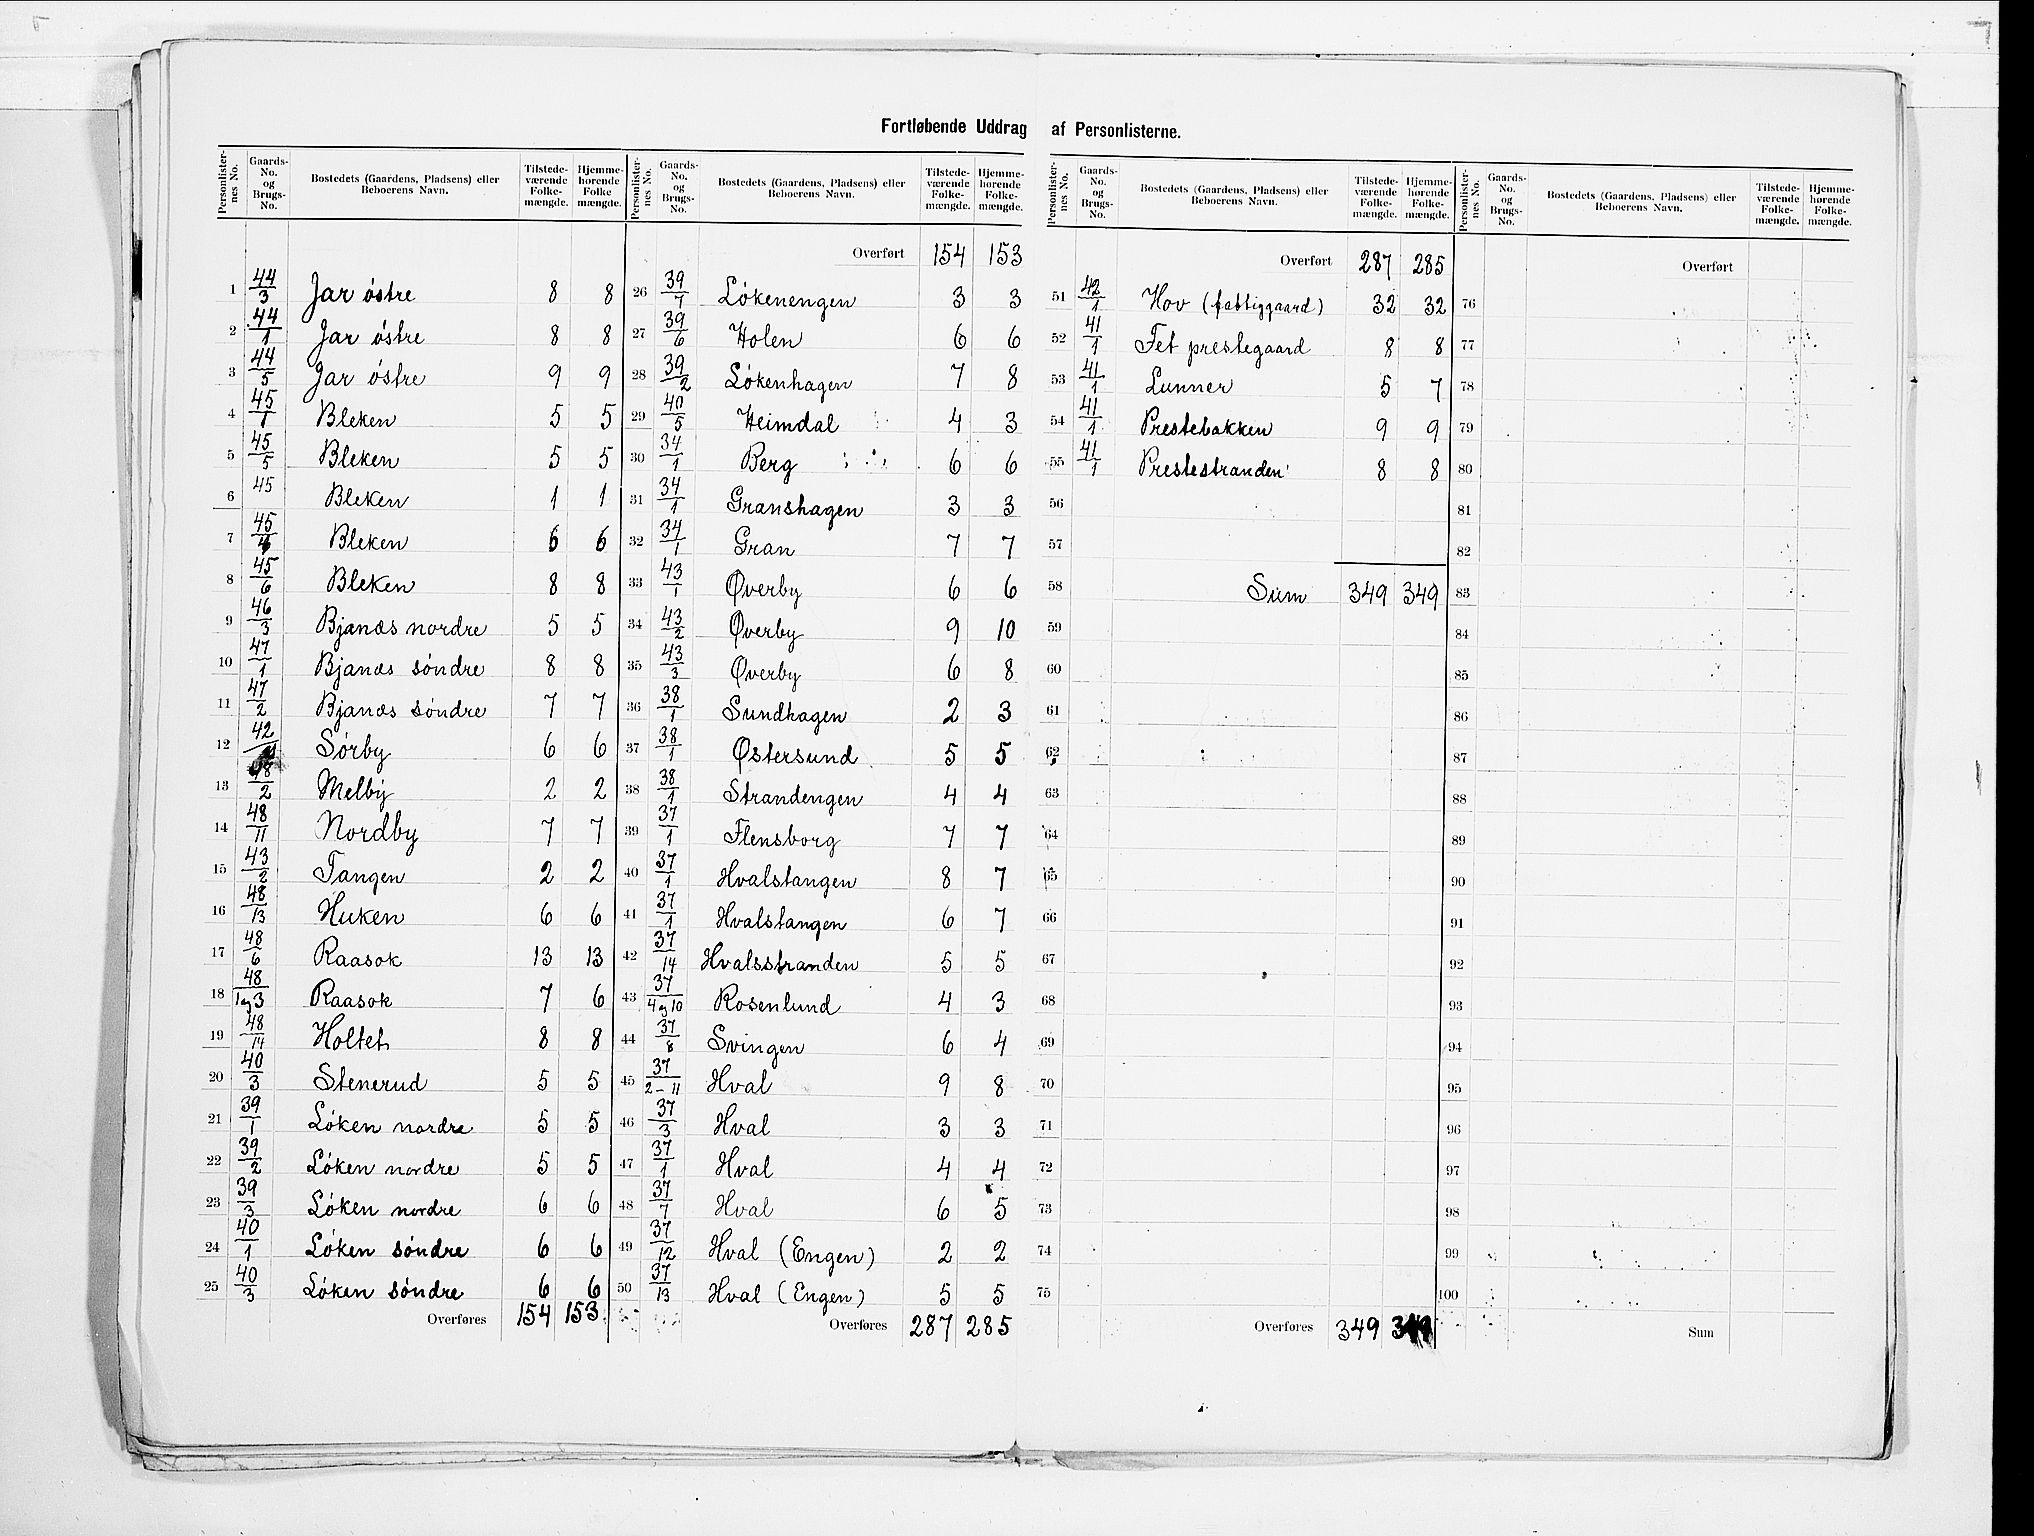 Fortløbende Uddrag af Personlisterne.
Personlister-nes No. | Gaards-No. og Brugs-No. | Bostedets (Gaardens, Pladsens) eller Beboerens Navn. | Tilstede-værende Folke-mængde. | Hjemme-hørende Folke mængde.
1 44/3 Jar östre 8 8
2 44/1 Jar östre 8 8
3 44/5 Jar östre 9 9
4 45/1 Bleken 5 5
5 45/5 Bleken 5 5
6 45 Bleken 1 1
7 45/4 Bleken 6 6
8 45/6 Bleken 8 8
9 46/3 Bjanæs nordre 5 5
10 47/1 Bjanæs söndre 8 8
11 47/2 Bjanæs söndre 7 7
12 42/ Sörby 6 6
13 48/2 Melby 2 2
14 48/11 Nordby 7 7
15 43/2 Tangen 2 2
16 48/13 Huken 6 6
17 48/6 Raasok 13 13
18 48/1 og 3 Raasok 7 6
19 48/14 Holtet 8 8
20 40/3 Stenerud 5 5
21 39/1 Löken nordre 5 5
22 39/2 Löken nordre 5 5
23 39/3 Löken nordre 6 6
24 40/1 Löken söndre 6 6
25 40/3 Löken söndre 6 6
Overføres 154 153
Personlister-nes No. | Gaards-No. og Brugs-No. | Bostedets (Gaardens, Pladsens) eller Beboerens Navn. | Tilstede-værende Folke-mængde. | Hjemme-hørende Folke-mængde.
Overført 154 153
26 39/7 Lökenengen 3 3
27 39/6 Holen 6 6
28 39/2 Lökenhagen 7 8
29 40/5 Heimdal 4 3
30 34/1 Berg 6 6
31 34/1 Granshagen 3 3
32 34/1 Gran 7 7
33 43/1 Øverby 6 6
34 43/2 Øverby 9 10
35 43/3 Øverby 6 8
36 38/1 Sundhagen 2 3
37 38/1 Østersund 5 5
38 38/1 Strandengen 4 4
39 37/1 Flensborg 7 7
40 37/1 Hvalstangen 8 7
41 37/1 Hvalstangen 6 7
42 37/14 Hvalsstranden 5 5
43 37/4 og 10 Rosenlund 4 3
44 37/8 Svingen 6 4
45 37/2-11 Hval 9 8
46 37/3 Hval 3 3
47 37/1 Hval 4 4
48 37/7 Hval 6 5
49 37/12 Hval (Engen) 2 2
50 37/13 Hval (Engen) 5 5
Overføres 287 285
Personlister-nes No. | Gaards-No. og Brugs-No. | Bostedets (Gaardens, Pladsens) eller Beboerens Navn. | Tilstede-værende Folke-mængde. | Hjemme-hørende Folke-mængde.
Overført 287 285
51 42/1 Hov (fattiggaard) 32 32
52 41/1 Fet prestegaard 8 8
53 41/1 Lunner 5 7
54 41/1 Prestebakken 9 9
55 41/1 Prestestranden 8 8
56
57
58 Sum 349 349
59
60
61
62
63
64
65
66
67
68
69
70
71
72
73
74
75
Overføres 349 349
Personlister-nes No. | Gaards-No. og Brugs-No. | Bostedets (Gaardens, Pladsens) eller Beboerens Navn. | Tilstede-værende Folke-mængde. | Hjemme-hørende Folke-mængde.
Overført
76
77
78
79
80
81
82
83
84
85
86
87
88
89
90
91
92
93
94
95
96
97
98
99
100
Sum